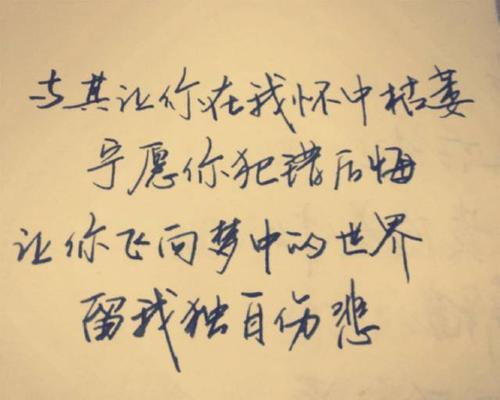 与其让你在我怀中枯萎
宁愿你犯错后悔
让你飞向梦中的世界
留我独自伤悲